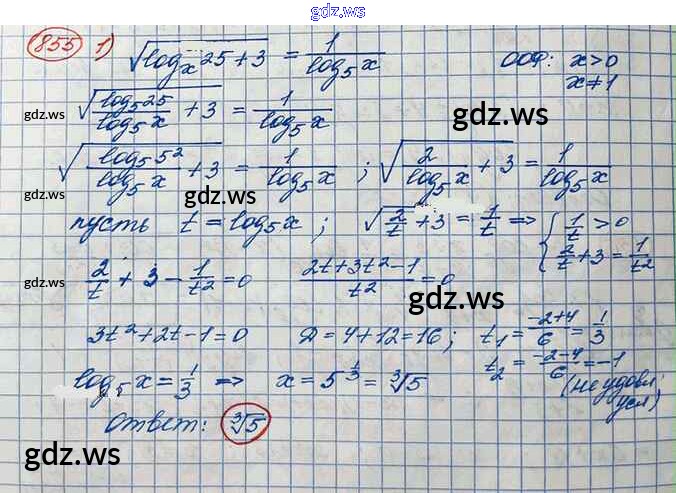 gdz.ws
855 1) √(logₓ25+3) = 1/log₅x ООФ: x>0
x≠1
gdz.ws √(log₅25/log₅x + 3) = 1/log₅x gdz.ws
gdz.ws √(log₅5²/log₅x + 3) = 1/log₅x ; √(2/log₅x + 3) = 1/log₅x
gdz.ws
пусть t = log₅x ; √(2/t + 3) = 1/t => { 1/t > 0
2/t + 3 = 1/t²
gdz.ws 2/t + 3 - 1/t² = 0 (2t+3t²-1)/t² = 0
gdz.ws
3t²+2t-1=0 Д=4+12=16; t₁ = (-2+4)/6 = 1/3
t₂ = (-2-4)/6 = -1
(не удовл.
усл)
gdz.ws log₅x = 1/3 => x = 5^(1/3) = ∛5
gdz.ws
Ответ: ∛5
gdz.ws
gdz.ws